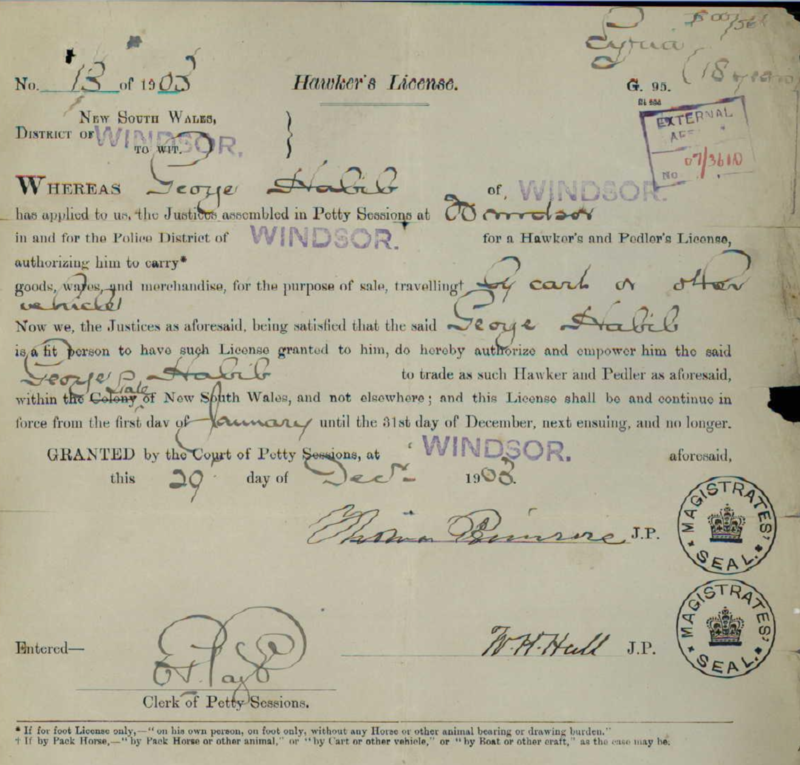 Syria
(18 years)
No. 13 of 1903 Hawker's License. G. 95.
NEW SOUTH WALES,
DISTRICT OF WINDSOR.
TO WIT.
EXTERNAL
07/3610
No
WHEREAS George Habib of WINDSOR.
has applied to us, the Justices assembled in Petty Sessions at Windsor
in and for the Police District of WINDSOR. for a Hawker's and Pedler's License,
authorizing him to carry*
goods, wares, and merchandise, for the purpose of sale, travelling† by cart or other
vehicle
Now we, the Justices as aforesaid, being satisfied that the said George Habib
is a fit person to have such License granted to him, do hereby authorize and empower him the said
George Habib to trade as such Hawker and Pedler as aforesaid,
State
within the Colony of New South Wales, and not elsewhere; and this License shall be and continue in
force from the first day of January until the 31st day of December, next ensuing, and no longer.
GRANTED by the Court of Petty Sessions, at WINDSOR. aforesaid,
this 29 day of Decr 1903.
Thomas Primrose J.P.
MAGISTRATES' SEAL
W. H. Hall J.P.
MAGISTRATES' SEAL
Entered—
Clerk of Petty Sessions.
* If for foot License only,—"on his own person, on foot only, without any Horse or other animal bearing or drawing burden."
† If by Pack Horse,—"by Pack Horse or other animal," or "by Cart or other vehicle," or "by Boat or other craft," as the case may be.